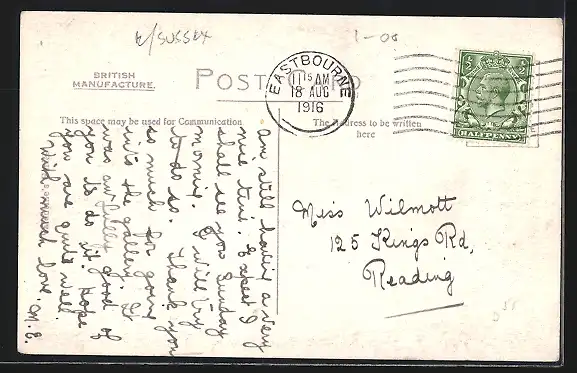 E/SUSSEX
1-00
BRITISH
MANUFACTURE.
POST CARD
EASTBOURNE
11 15 AM
18 AUG
1916
HALFPENNY
This space may be used for Communication
The Address to be written
here
am still having a very
nice time. Expect I
shall see you Sunday
morning. I will try
to do so. Thank you
so much for going
in's the gallery. It
was awfully good of
you to do it. Hope
you are quite well
With much love. M.E.
Miss Wilmott
125 Kings Rd,
Reading